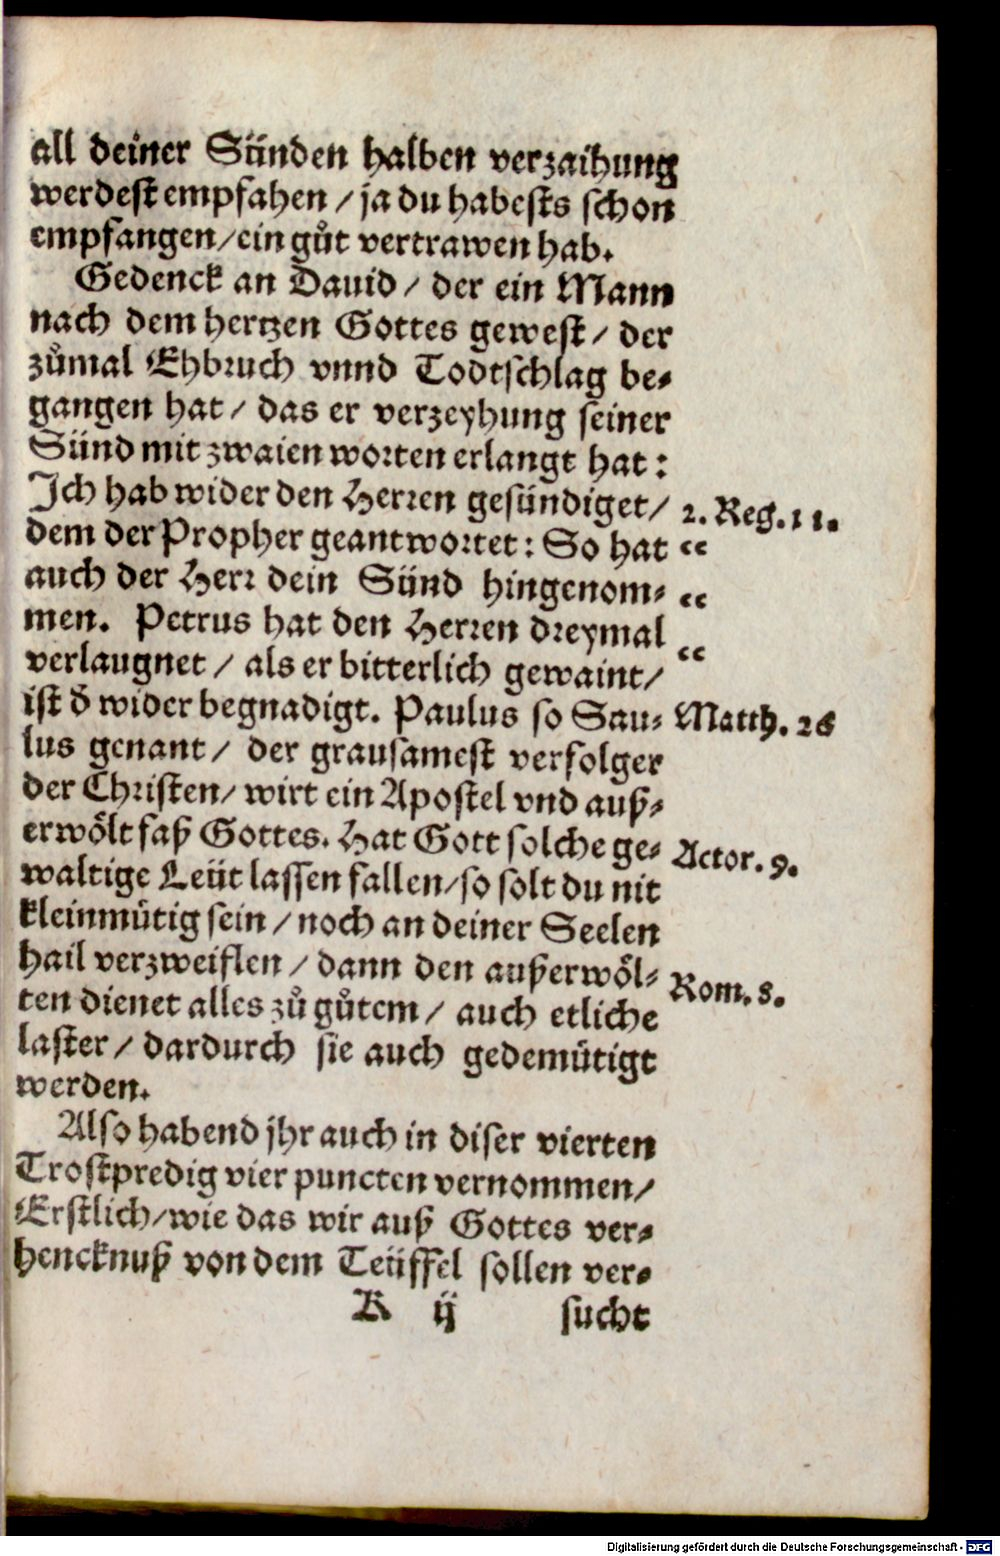 all deiner Sünden halben verzaihung
werdest empfahen / ja du habests schon
empfangen / ein gůt vertrawen hab.
Gedenck an Dauid / der ein Mann
nach dem hertzen Gottes gewest / der
zůmal Ehbruch vnnd Todtschlag be-
gangen hat / das er verzeyhung seiner
Sünd mit zwaien worten erlangt hat:
Ich hab wider den Herren gesündiget / 2. Reg. 11.
dem der Prophet geantwortet: So hat “
auch der Herr dein Sünd hingenom- “
men. Petrus hat den Herren dreymal “
verlaugnet / als er bitterlich gewaint /
ist d̕ wider begnadigt. Paulus so Sau- Matth. 26
lus genant / der grausamest verfolger
der Christen / wirt ein Apostel vnd auß-
erwölt faß Gottes. Hat Gott solche ge- Actor. 9.
waltige Leüt lassen fallen / so solt du nit
kleinmütig sein / noch an deiner Seelen
hail verzweiflen / dann den außerwöl- Rom. 8.
ten dienet alles zů gůtem / auch etliche
laster / dardurch sie auch gedemütigt
werden.
Also habend jhr auch in diser vierten
Trostpredig vier puncten vernommen /
Erstlich / wie das wir auß Gottes ver-
hencknuß von dem Teüffel sollen ver-
K ij sucht
Digitalisierung gefördert durch die Deutsche Forschungsgemeinschaft - DFG